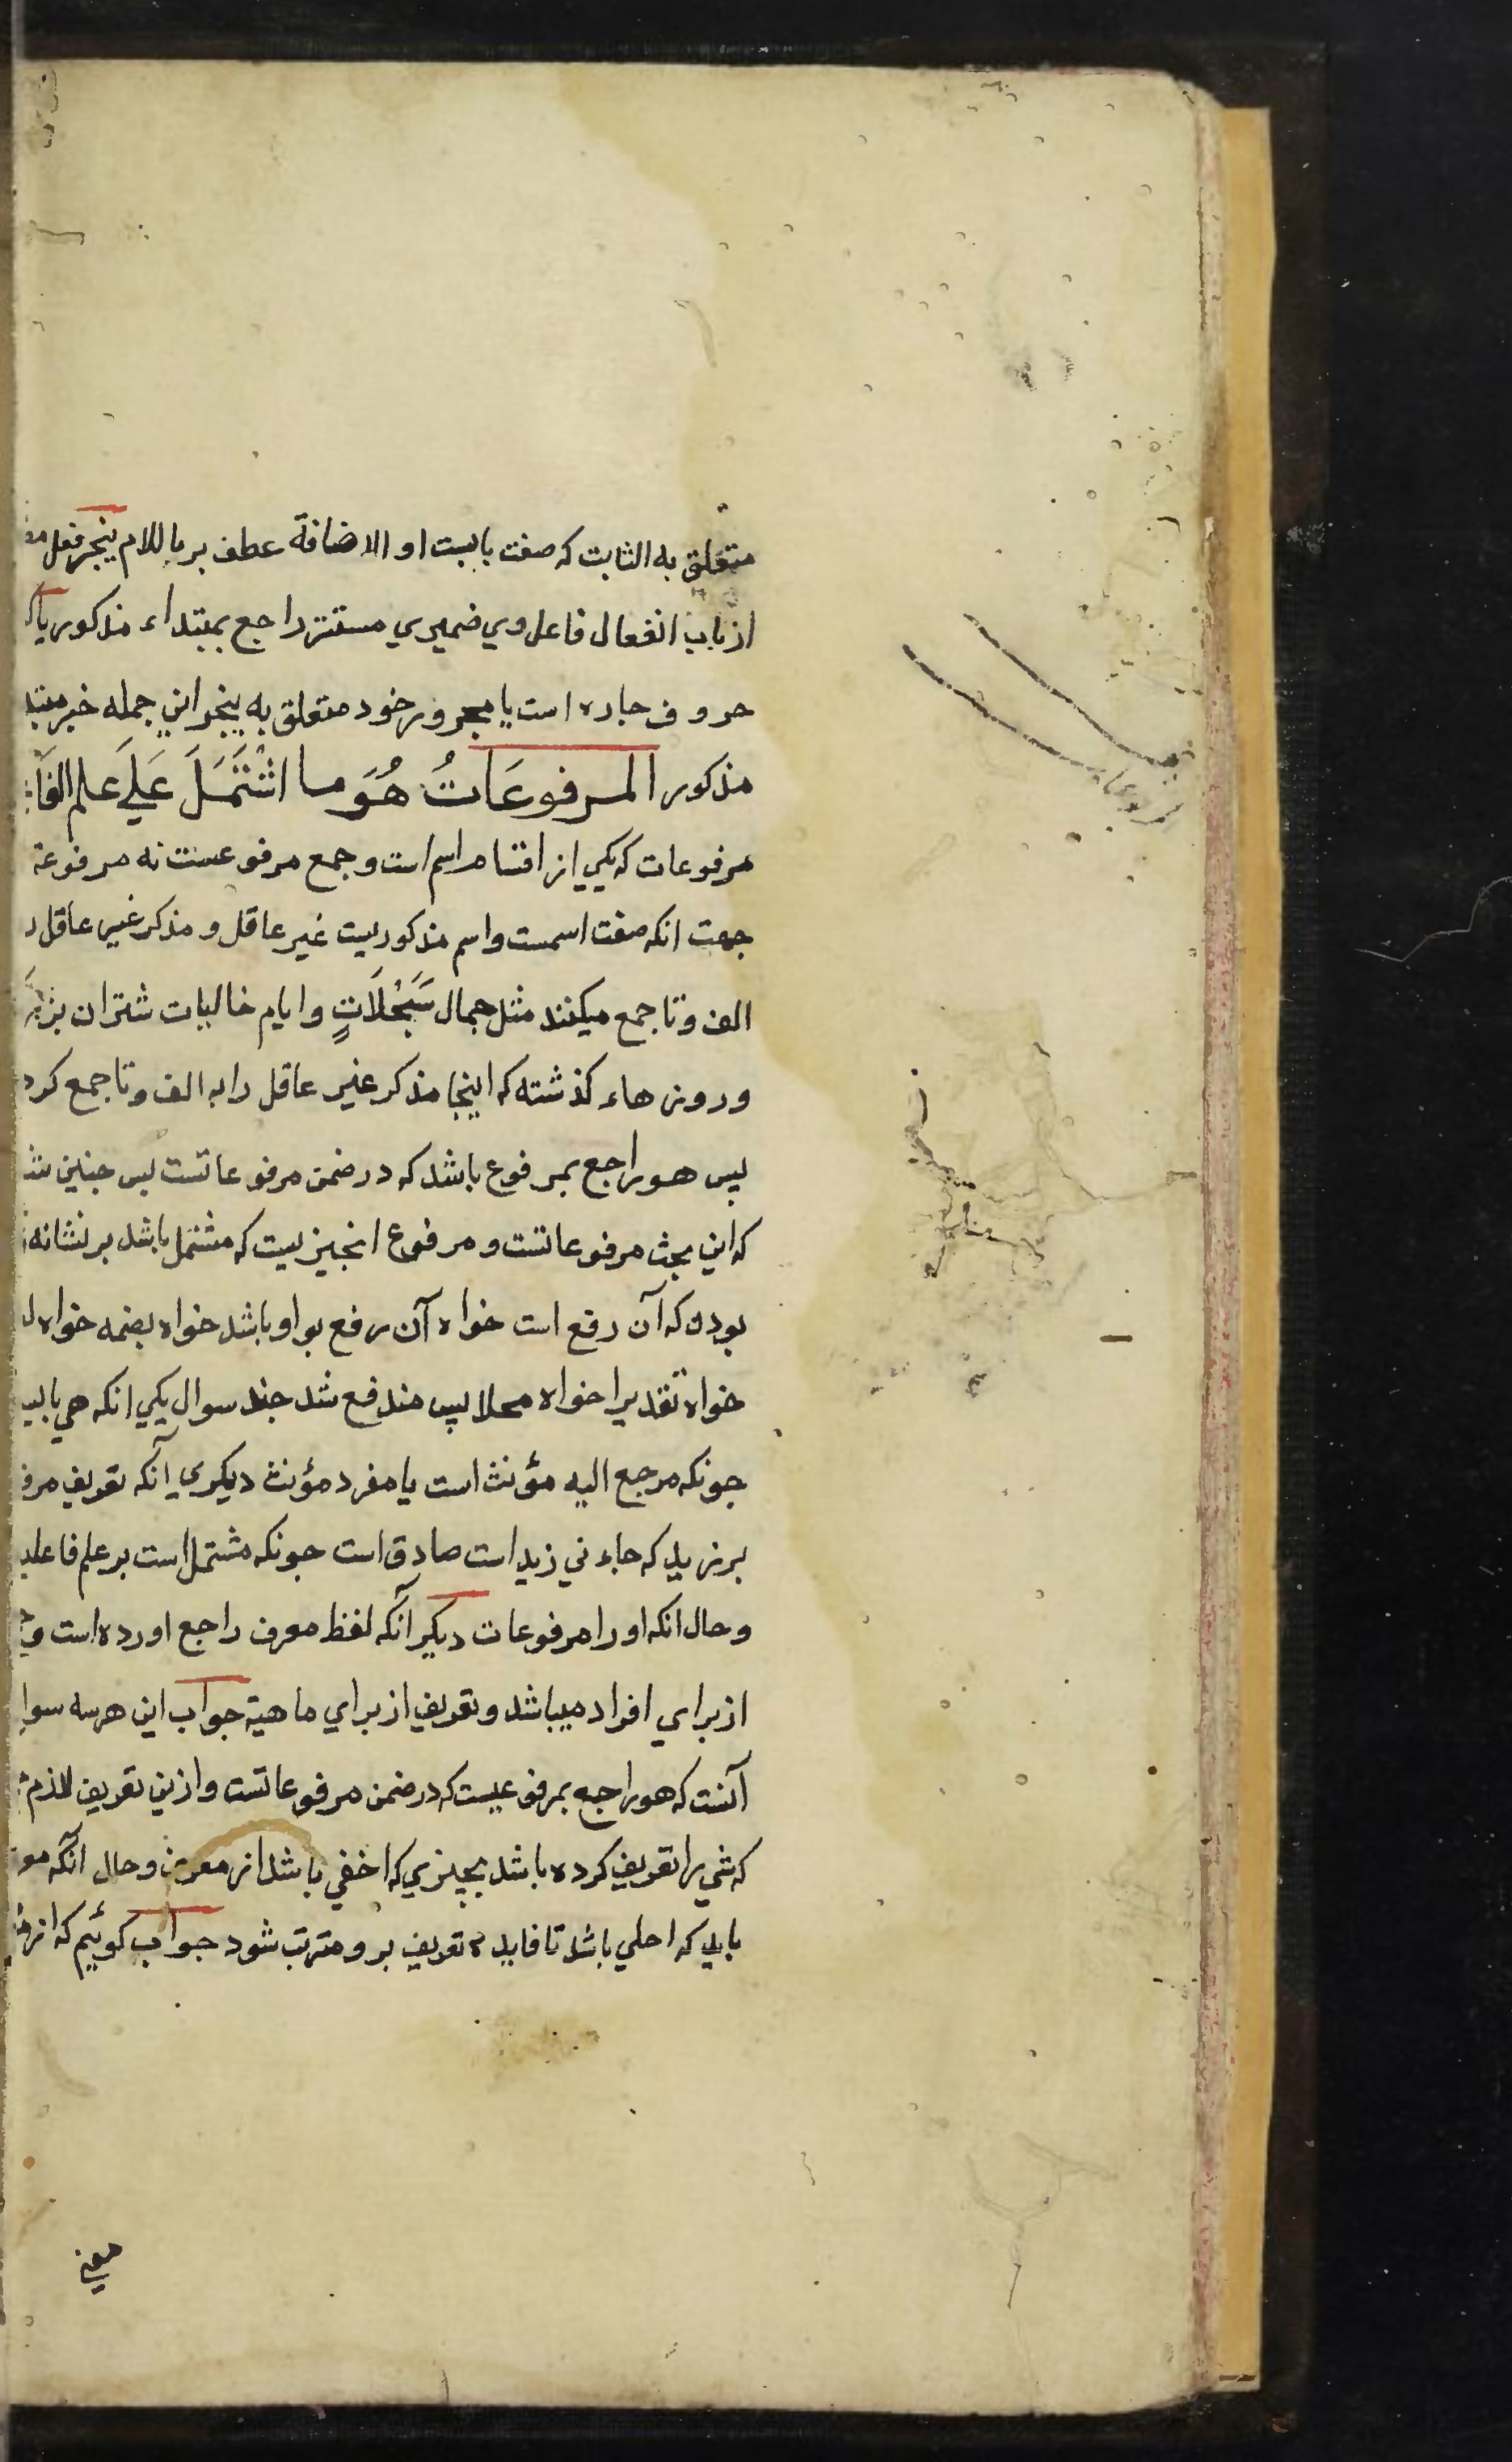 متعلق به الثابت که صفت بابست او الاضافة عطف بر باللام ینجر فعل
از باب انفعال فاعل وی ضمیری مستتر راجع بمبتداء مذکور یا
حروف جاره است یا مجرور خود متعلق به ینجر این جمله خبر
مذکور المرفوعَاتُ هُوَ ما اشْتَمَلَ عَلَی علم الفا
مرفوعات که یکی از اقسام اسم است و جمع مرفوعست نه مرفوعة
جهت انکه صفت اسمست و اسم مذکوریست غیر عاقل و مذکر غیر عاقل
الف و تا جمع میکنند مثل جمال سَبَحْلَاتٍ و ایام خالیات شتران
و روزهاء کذشته که اینجا مذکر غیر عاقل را به الف و تا جمع کرد
پس هو راجع بمرفوع باشد که در ضمن مرفوعاتست پس جنین
که این بحث مرفوعاتست و مرفوع انجیزیست که مشتمل باشد بر نشانه
بودن که آن رفع است خواه آن رفع بواو باشد خواه بضمه خواه
خواه تقدیرا خواه محلا پس مندفع شد جند سوال یکی انکه هی
جونکه مرجع الیه مؤنث است یا مفرد مؤنث دیکری آنکه تعریف
بر زید که جاءنی زید است صادق است جونکه مشتمل است بر علم
و حال انکه او را مرفوعات دیکر آنکه لفظ معرف راجع اورده است
از برای افراد میباشد و تعریف از برای ماهیة جواب این هر سه
آنست که هو راجع بمرفوعیست که در ضمن مرفوعاتست و ازین تعریف لازم
که شی را تعریف کرده باشد بچیزی که اخفی باشد از معرف و حال آنکه
باید که اجلی باشد تا فایده تعریف برو مترتب شود جواب کوئیم که از
معنی